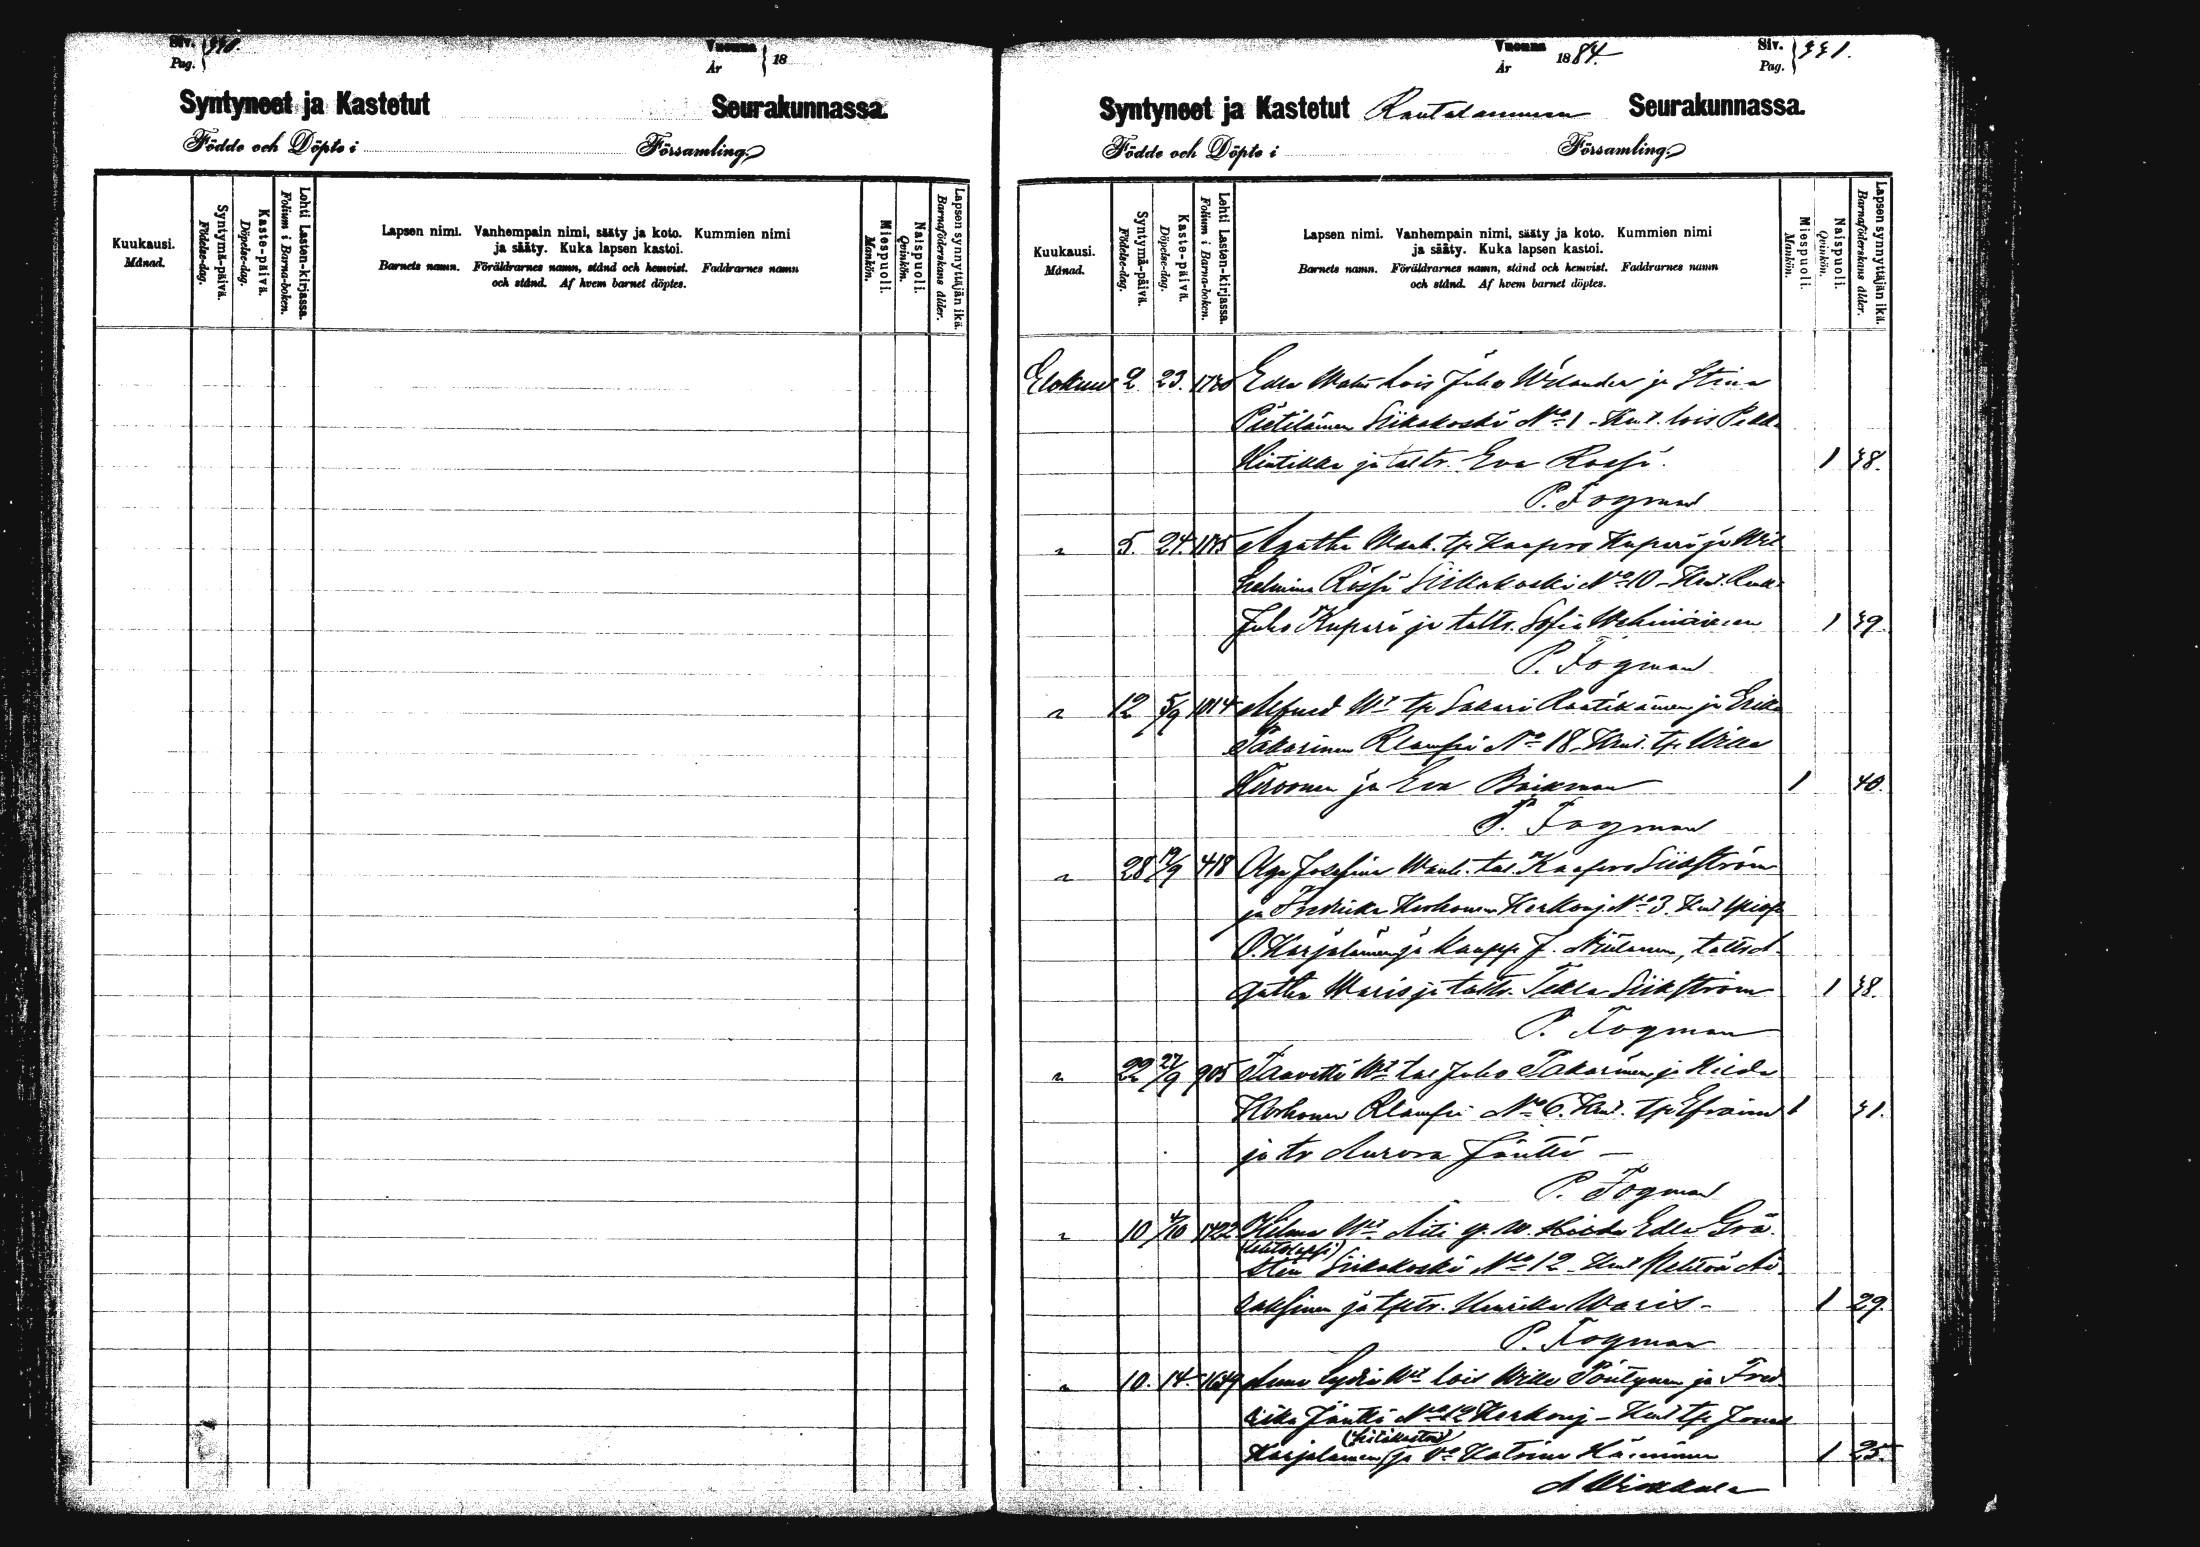 Siv. 330.
Pag.
Vuonna
År 18
Syntyneet ja Kastetut Seurakunnassa.
Födde och Döpte i Församling.
Kuukausi.
Månad.
Syntymä-päivä.
Födelse-dag.
Kaste-päivä.
Döpelse-dag.
Lehti Lasten-kirjassa.
Folium i Barna-boken.
Lapsen nimi. Vanhempain nimi, sääty ja koto. Kummien nimi
ja sääty. Kuka lapsen kastoi.
Barnets namn. Föräldrarnes namn, stånd och hemvist. Faddrarnes namn
och stånd. Af hvem barnet döptes.
Miespuoli.
Mankön.
Naispuoli.
Qvinkön.
Lapsen synnyttäjän ikä.
Barnaföderskans ålder.
Vuonna
År 1884.
Siv. 331.
Pag.
Syntyneet ja Kastetut Rautalammen Seurakunnassa.
Födde och Döpte i Församling.
Kuukausi.
Månad.
Syntymä-päivä.
Födelse-dag.
Kaste-päivä.
Döpelse-dag.
Lehti Lasten-kirjassa.
Folium i Barna-boken.
Lapsen nimi. Vanhempain nimi, sääty ja koto. Kummien nimi
ja sääty. Kuka lapsen kastoi.
Barnets namn. Föräldrarnes namn, stånd och hemvist. Faddrarnes namn
och stånd. Af hvem barnet döptes.
Miespuoli.
Mankön.
Naispuoli.
Qvinkön.
Lapsen synnyttäjän ikä.
Barnaföderskans ålder.
Elokuu 2 23. Edla lois Juho Wilander ja Stina
Pietiläinen Siikakoski No 1 - Kut. lois Pekk.
Hintikka ja taltr. Eva Rossi. 1 38.
P. Fogman
" 5. 24. 1175 Agatha Wanh. tp. Kaapro Kupari ja Wil
helmina Rossi Siikakoski No 10 - Kut. Renk.
Juho Kupari ja taltr. Sofia Wehniäinen 1 39.
P. Fogman
" 12 5/9 1014 Alfred Wt tp Sakari Raatikainen ja Erika
Takarinen No 18 Kut. tp. Wille
Hirvonen ja Eva Boikman 1 40.
P. Fogman
" 28 12/9 418 Olga Josefina Wanh. tal. Kaapro Siikström
ja Fredrika Korhonen Kerkonj. No 3. Kut.
O. Karjalainen ja kaupp. J. Niilanen,
gatha Waris ja taltr. Tekla Siikström 1 38.
P. Fogman
" 22 27/9 905 Taavetti Wt tal Juho Takarinen ja Hilda
Korhonen No 6. Kut. tp. Efraim 1 31.
ja tr Aurora Jäntti -
P. Fogman
" 10 4/10 1422 Hilma Wt Äiti Hilda Edla Grö
(lehtolapsi)
sten Siikakoski No 12 - Kut
ja Henrika Waris - 1 29.
P. Fogman
" 10. 14. 1649 Anna Lydia Wt lois Wille Pöntynen ja Fred
rika Jäntti No 12 Kerkonj - Kut tp Jonas
(hätäkastoi)
Karjalainen ja Katrina Hänninen 1 25.